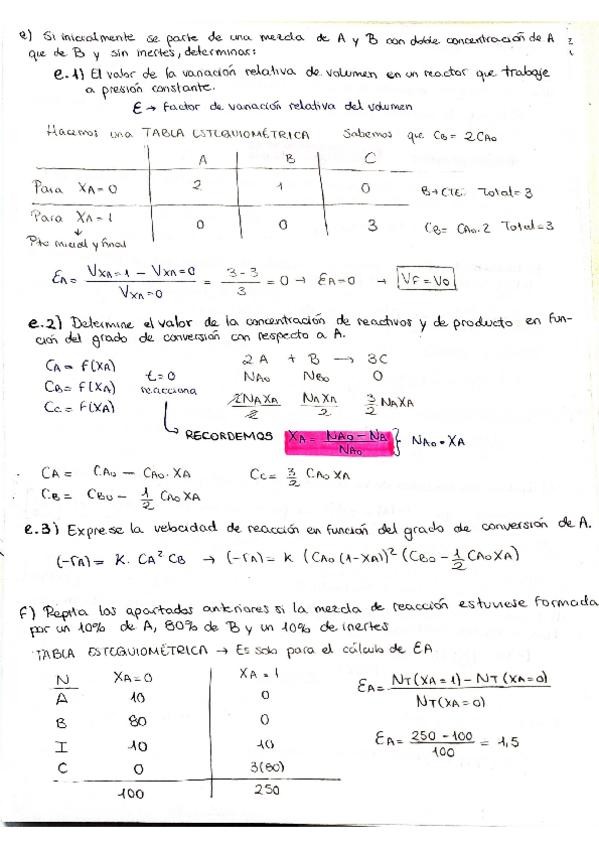 e) Si inicialmente se parte de una mezcla de A y B con doble concentración de A
que de B y sin inertes, determinar:
e.1) El valor de la variación relativa de volumen en un reactor que trabaje
a presión constante.
ε → factor de variación relativa del volumen
Hacemos una TABLA ESTEQUIOMÉTRICA Sabemos que CB = 2CA0
A B C
Para XA = 0 2 1 0 Total = 3
Para XA = 1 0 0 3 CB = CA0·2 Total = 3
Pto inicial y final
εA = VXA=1 − VXA=0 / VXA=0 = 3-3 / 3 = 0 → εA=0 → VF = V0
e.2) Determine el valor de la concentración de reactivos y de producto en fun-
ción del grado de conversión con respecto a A.
CA = f(XA) 2A + B → 3C
CB = f(XA) t=0 NA0 NB0 0
CC = f(XA) reacciona 2NAXA / 2 NAXA / 2 3/2 NAXA
RECORDEMOS XA = NA0 − NA / NA0 } NA0·XA
CA = CA0 − CA0·XA CC = 3/2 CA0XA
CB = CB0 − 1/2 CA0XA
e.3) Exprese la velocidad de reacción en función del grado de conversión de A.
(-rA) = K·CA² CB → (-rA) = K (CA0(1-XA))² (CB0 − 1/2 CA0XA)
f) Repita los apartados anteriores si la mezcla de reacción estuviese formada
por un 10% de A, 80% de B y un 10% de inertes
TABLA ESTEQUIOMÉTRICA → Es solo para el cálculo de εA
N XA=0 XA=1
A 10 0
B 80 0
I 10 10
C 0 3(80)
100 250
εA = NT(XA=1) − NT(XA=0) / NT(XA=0)
εA = 250 − 100 / 100 = 1,5